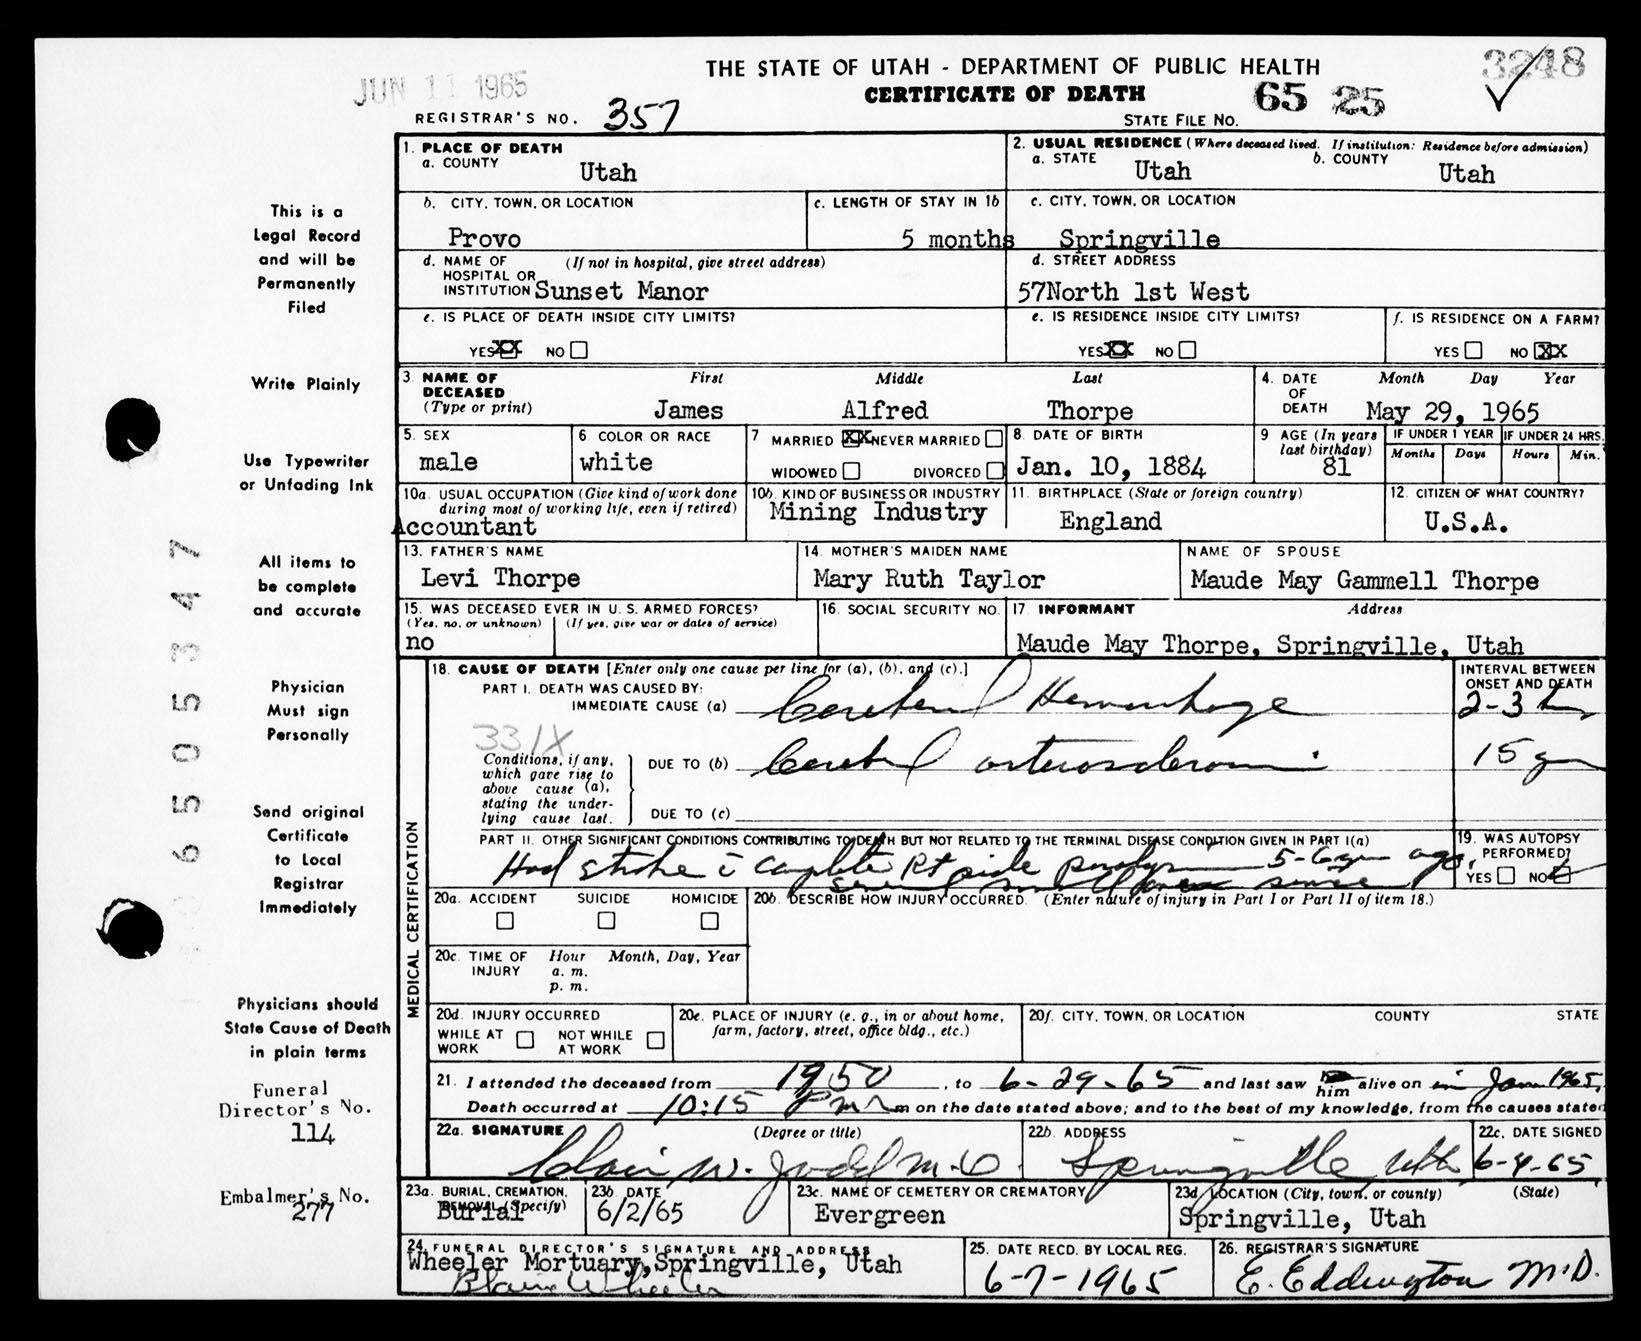 THE STATE OF UTAH - DEPARTMENT OF PUBLIC HEALTH
3248
JUN 11 1965
CERTIFICATE OF DEATH
65 25
REGISTRAR'S NO. 357
STATE FILE NO.
1. PLACE OF DEATH
a. COUNTY Utah
2. USUAL RESIDENCE (Where deceased lived. If institution: Residence before admission)
a. STATE Utah b. COUNTY Utah
b. CITY, TOWN, OR LOCATION Provo
c. LENGTH OF STAY IN 1b 5 months
c. CITY, TOWN, OR LOCATION Springville
d. NAME OF HOSPITAL OR INSTITUTION (If not in hospital, give street address) Sunset Manor
d. STREET ADDRESS 57North 1st West
e. IS PLACE OF DEATH INSIDE CITY LIMITS?
YES XX NO
e. IS RESIDENCE INSIDE CITY LIMITS?
YES XX NO
f. IS RESIDENCE ON A FARM?
YES NO XX
3 NAME OF DECEASED (Type or print)
First Middle Last
James Alfred Thorpe
4. DATE OF DEATH
Month Day Year
May 29, 1965
5. SEX male
6 COLOR OR RACE white
7 MARRIED XX NEVER MARRIED
WIDOWED DIVORCED
8. DATE OF BIRTH Jan. 10, 1884
9 AGE (In years last birthday) 81
IF UNDER 1 YEAR Months Days
IF UNDER 24 HRS. Hours Min.
10a. USUAL OCCUPATION (Give kind of work done during most of working life, even if retired)
Accountant
10b. KIND OF BUSINESS OR INDUSTRY
Mining Industry
11. BIRTHPLACE (State or foreign country)
England
12. CITIZEN OF WHAT COUNTRY?
U.S.A.
13. FATHER'S NAME
Levi Thorpe
14. MOTHER'S MAIDEN NAME
Mary Ruth Taylor
NAME OF SPOUSE
Maude May Gammell Thorpe
15. WAS DECEASED EVER IN U.S. ARMED FORCES?
(Yes, no, or unknown) (If yes, give war or dates of service)
no
16. SOCIAL SECURITY NO.
17. INFORMANT Address
Maude May Thorpe, Springville, Utah
18. CAUSE OF DEATH [Enter only one cause per line for (a), (b), and (c).]
INTERVAL BETWEEN ONSET AND DEATH
PART I. DEATH WAS CAUSED BY:
IMMEDIATE CAUSE (a) Cerebral Hemorrhage
2-3
331X
Conditions, if any, which gave rise to above cause (a), stating the underlying cause last.
DUE TO (b) Cerebral arteriosclerosis
15 yrs
DUE TO (c)
PART II. OTHER SIGNIFICANT CONDITIONS CONTRIBUTING TO DEATH BUT NOT RELATED TO THE TERMINAL DISEASE CONDITION GIVEN IN PART I(a)
Had stroke c̄ complete Rt side paralysis 5-6 yrs ago,
several small ones since
19. WAS AUTOPSY PERFORMED?
YES NO
MEDICAL CERTIFICATION
20a. ACCIDENT SUICIDE HOMICIDE
20b. DESCRIBE HOW INJURY OCCURRED. (Enter nature of injury in Part I or Part II of item 18.)
20c. TIME OF INJURY Hour Month, Day, Year
a. m.
p. m.
20d. INJURY OCCURRED
WHILE AT WORK NOT WHILE AT WORK
20e. PLACE OF INJURY (e. g., in or about home, farm, factory, street, office bldg., etc.)
20f. CITY, TOWN, OR LOCATION COUNTY STATE
21. I attended the deceased from 1950, to 6-29-65 and last saw him alive on in Jan 1965.
Death occurred at 10:15 P m on the date stated above; and to the best of my knowledge, from the causes stated
22a. SIGNATURE (Degree or title)
Blair W. Judd M.D.
22b. ADDRESS
Springville Utah
22c. DATE SIGNED
6-4-65
23a. BURIAL, CREMATION, REMOVAL (Specify)
Burial
23b. DATE
6/2/65
23c. NAME OF CEMETERY OR CREMATORY
Evergreen
23d. LOCATION (City, town, or county) (State)
Springville, Utah
24. FUNERAL DIRECTOR'S SIGNATURE AND ADDRESS
Wheeler Mortuary, Springville, Utah
Blaine Wheeler
25. DATE RECD. BY LOCAL REG.
6-7-1965
26. REGISTRAR'S SIGNATURE
E. Eddington M.D.
This is a
Legal Record
and will be
Permanently
Filed
Write Plainly
Use Typewriter
or Unfading Ink
All items to
be complete
and accurate
Physician
Must sign
Personally
Send original
Certificate
to Local
Registrar
Immediately
Physicians should
State Cause of Death
in plain terms
Funeral
Director's No.
114
Embalmer's No.
277
6505347